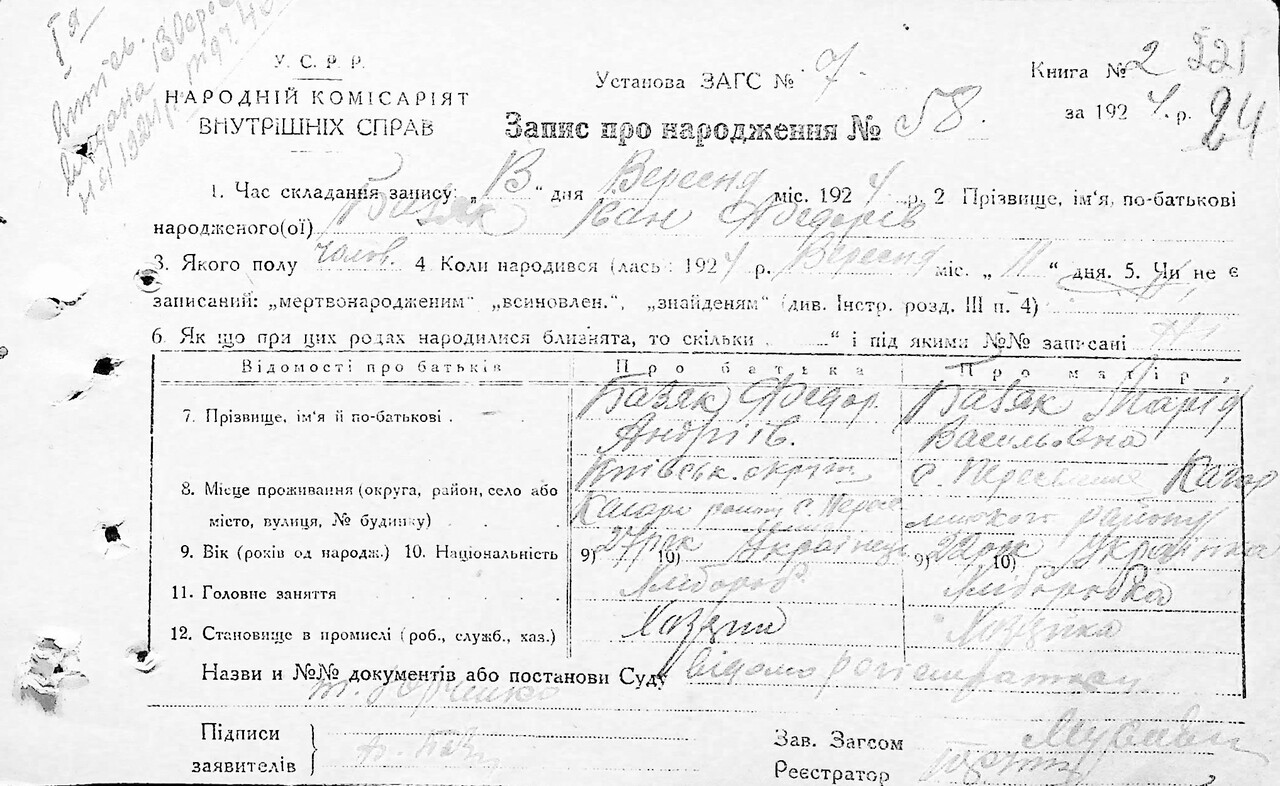 У. С. Р. Р.
НАРОДНІЙ КОМІСАРІЯТ
ВНУТРІШНІХ СПРАВ
Установа ЗАГС № 7.
Книга № 2 221
за 1924 р. 24
Запис про народження № 58.
1. Час складання запису: „13“ дня Вересня міс. 1924 р. 2 Прізвище, ім'я, по-батькові
народженого(ої) Базяк Іван Федорів
3. Якого полу чолов. 4 Коли народився (лась) 1924 р. Вересня міс. „11“ дня. 5. Чи не є
записаний: „мертвонародженим“ „всиновлен.“, „знайденям“ (див. Інстр. розд. III п. 4)
6. Як що при цих родах народилися близнята, то скільки „ “ і під якими №№ записані
Відомості про батьків Про батька Про матір,
7. Прізвище, ім'я й по-батькові . Базяк Федор Базяк Марія
Андріїв. Васильовна
8. Місце проживання (округа, район, село або Київськ. окріг с. Кагар
місто, вулиця, № будинку) Кагарл району с. лицкого району
9. Вік (років од народж.) 10. Національність 9) 27 рок 10) Українець 9) рок 10) Українка
11. Головне заняття Хлібороб Хліборобка
12. Становище в промислі (роб., служб., хаз.) Хазяин Хазяйка
Назви и №№ документів або постанови Суду відомо
Підписи
заявителів
Зав. Загсом
Реєстратор